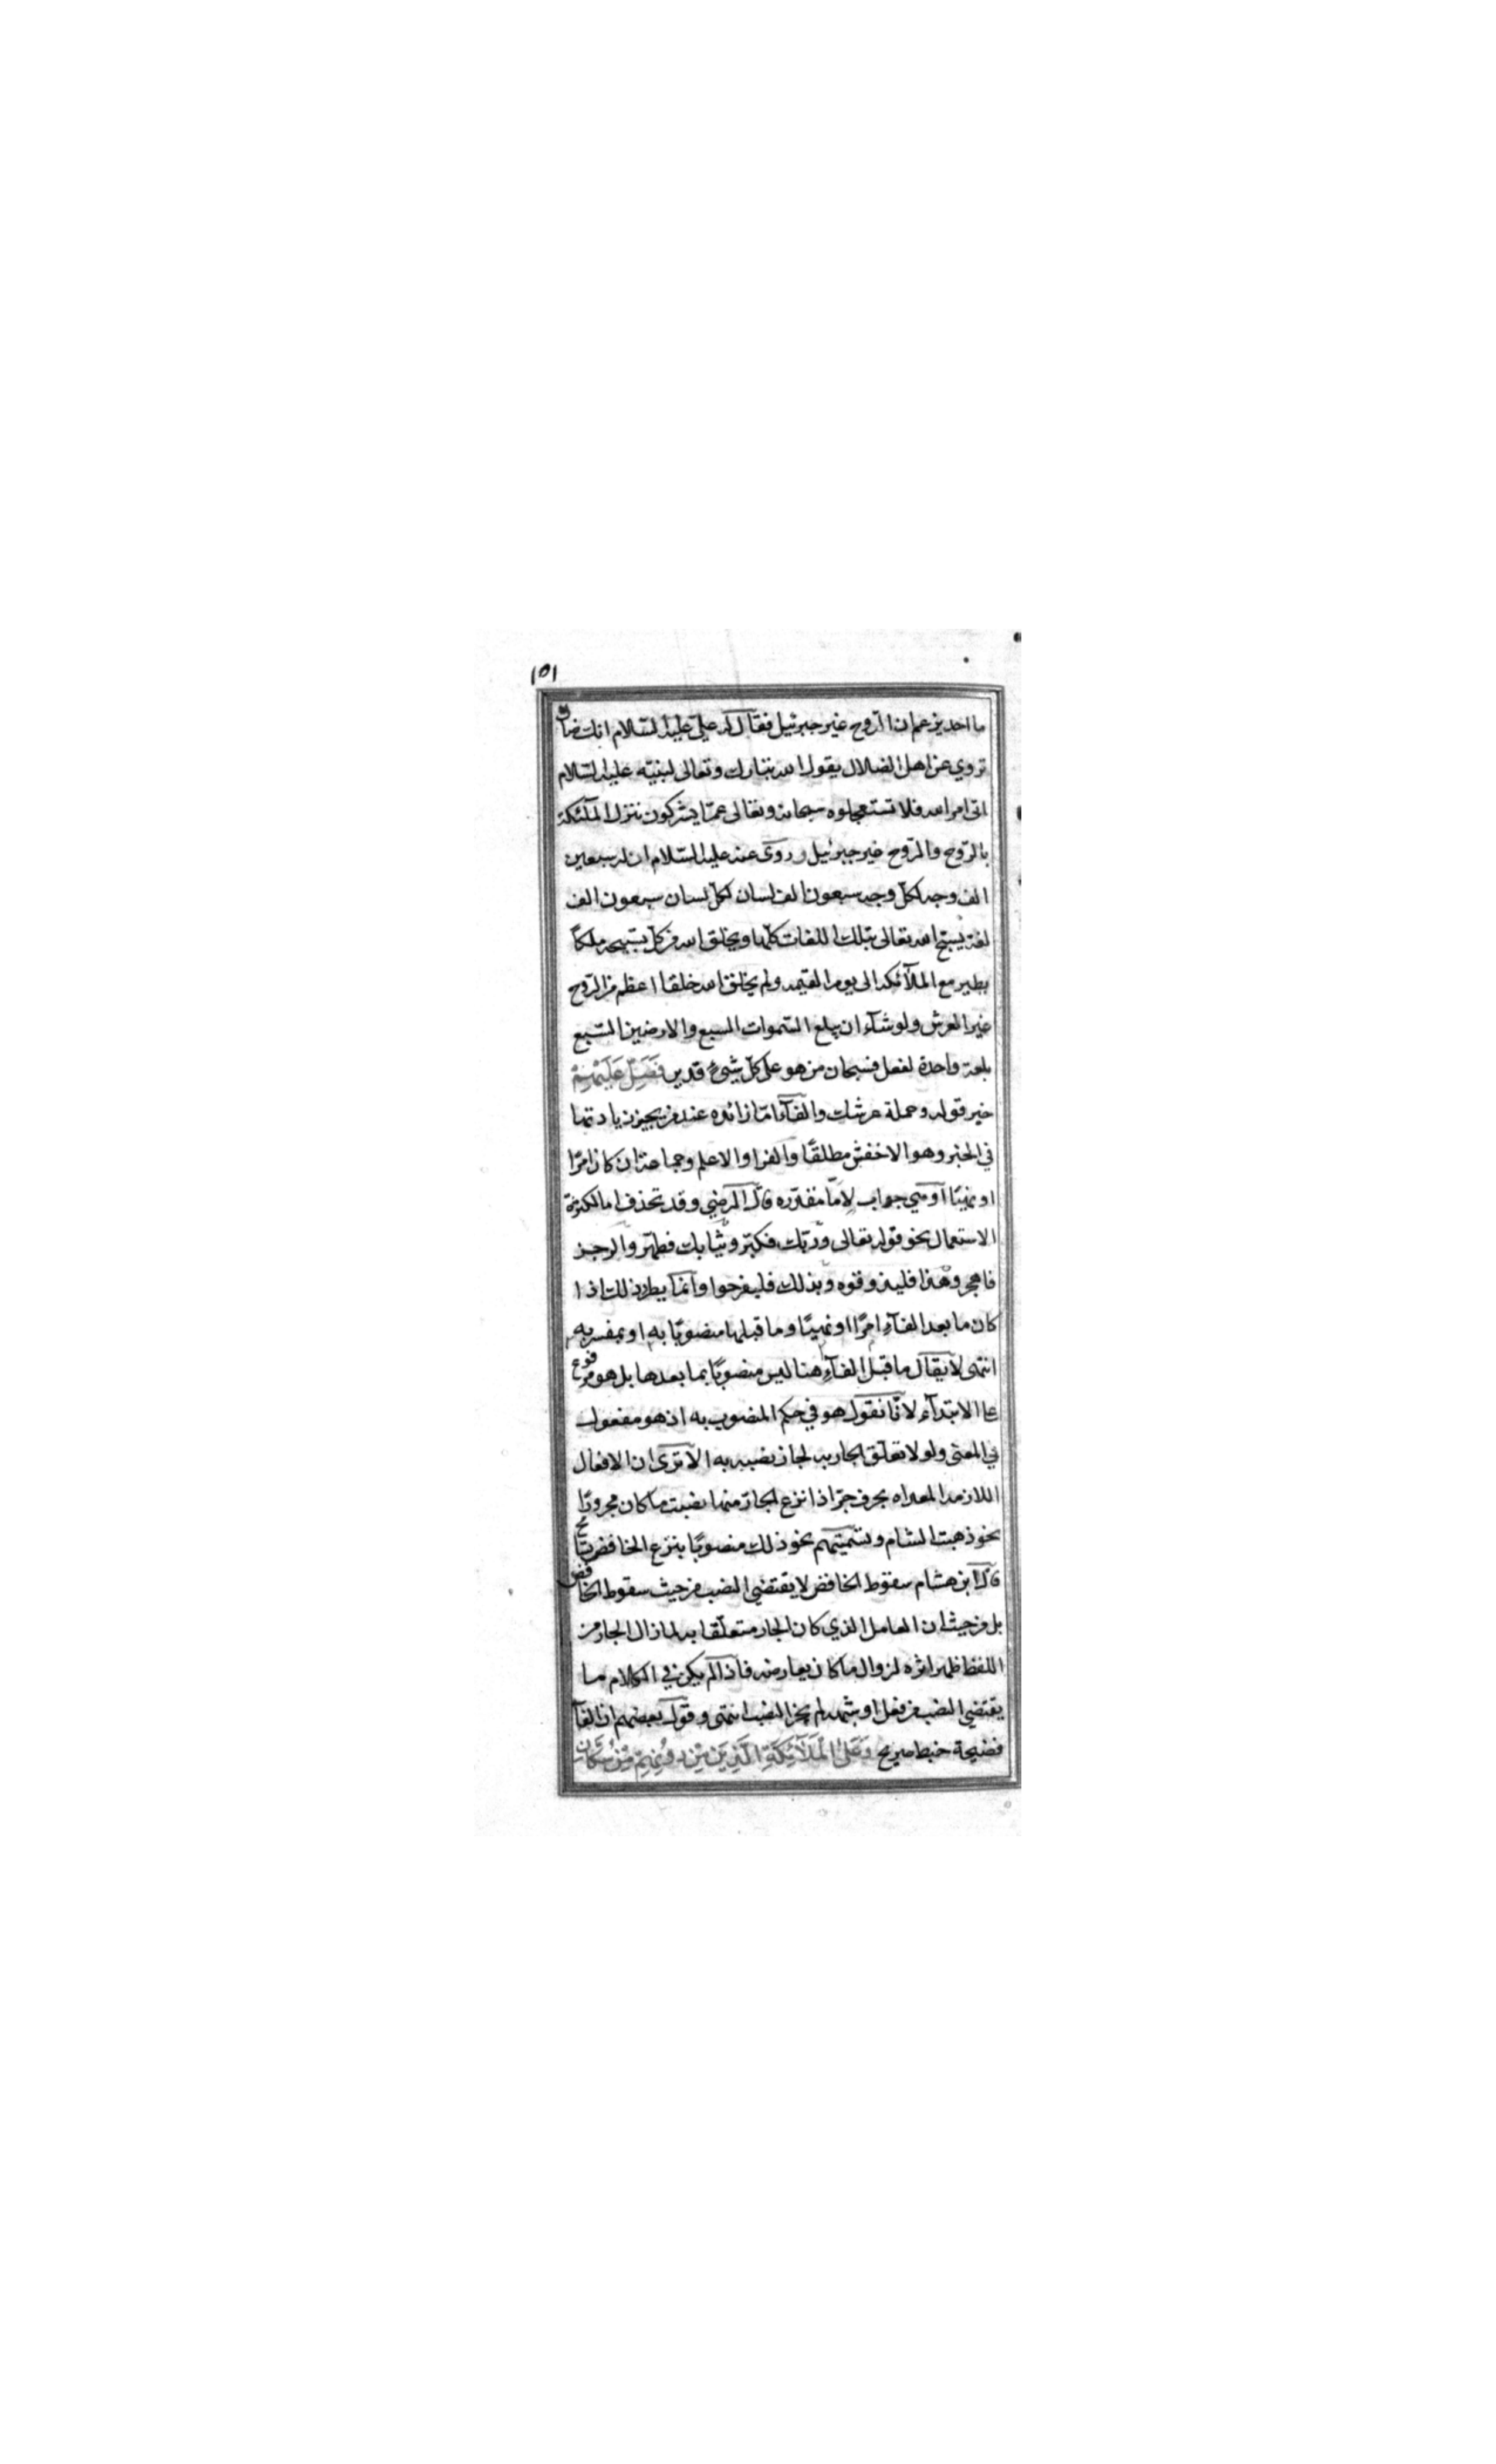 ١٥١
ما احد يزعم ان الرّوح غير جبرئيل فقال له عليّ عليه السّلام انك ضال
تروي عن اهل الضلال يقول الله تبارك وتعالى لنبيّه عليه السّلام
اتى امر الله فلا تستعجلوه سبحانه وتعالى عمّا يشركون تنزل الملئكة
بالرّوح والرّوح غير جبرئيل وروى عنه عليه السّلام ان له سبعين
الف وجه لكلّ وجه سبعون الف لسان لكلّ لسان سبعون الف
لغة يسبّح الله تعالى بتلك اللغات كلّها ويخلق الله من كلّ تسبيحه ملكاً
يطير مع الملآئكه الى يوم القيمه ولم يخلق الله خلقا اعظم من الرّوح
غير العرش ولو شآء ان يبلع السّموات السبع والارضين السّبع
بلعة واحدة لفعل فسبحان من هو على كلّ شيء قدير فَصَلِّ عَلَيْهِمْ
خبر قوله وحملة عرشك والفآء امّا زائده عند من يجيز زيادتها
في الخبر وهو الاخفش مطلقًا والفرا والاعلم وجماعة ان كان امرًا
او نهيًا او هي جواب لامّا مقدّره قال الرضي وقد تحذف اما لكثرة
الاستعمال نحو قوله تعالى وربّك فكبّر وثيابك فطهّر والرجز
فاهجر وهذا فليذوقوه وبذلك فليفرحوا وانّما يطرد ذلك اذا
كان ما بعد الفآء امرًا او نهيًا وما قبلها منصوبًا به او بمفسر به
انتهى لا يقال ما قبل الفآء هنا ليس منصوبًا بما بعدها بل هو مرفوع
على الابتدآء لانّا نقول هو في حكم المنصوب به اذ هو مفعول
في المعنى ولولا تعلّق الجار به لجاز نصبه به الا ترى ان الافعال
اللازمه المعداه بحرف جرّ اذا نزع الجارّ منها نصبت ما كان مجرورًا
نحو ذهبت الشام وتسميتهم نحو ذلك منصوبًا بنزع الخافض تسامح
قال ابن هشام سقوط الخافض لا يقتضي النصب من حيث سقوط الخافض
بل من حيث ان العامل الذي كان الجار متعلّقا به لما زال الجار من
اللفظ ظهر اثره لزوال ما كان يعارضه فاذا لم يكن في الكلام ما
يقتضي النصب من فعل او شبهه لم يجز النصب انتهى وقول بعضهم ان الفآ
فضيحة خبط صريح وَعَلَى الْمَلَآئِكَةِ الَّذِينَ مِنْ دُونِهِمْ مِنْ سُكَّانِ